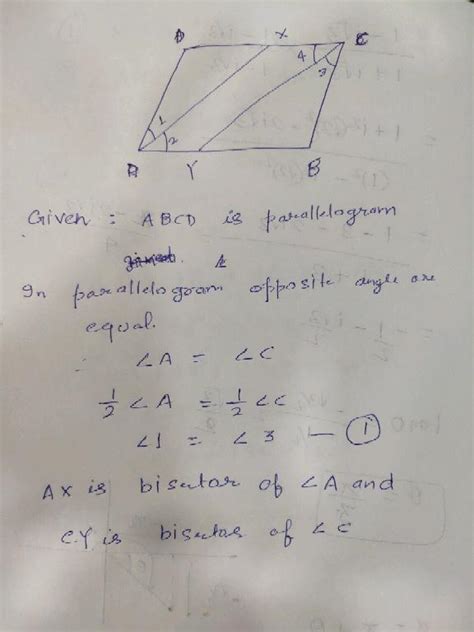 D X C
4
3
1
2
A Y B
Given : ABCD is parallelogram
In parallelogram opposite angle are
equal.
∴ ∠A = ∠C
1/2 ∠A = 1/2 ∠C
∠1 = ∠3 — ①
AX is bisector of ∠A and
CY is bisector of ∠C